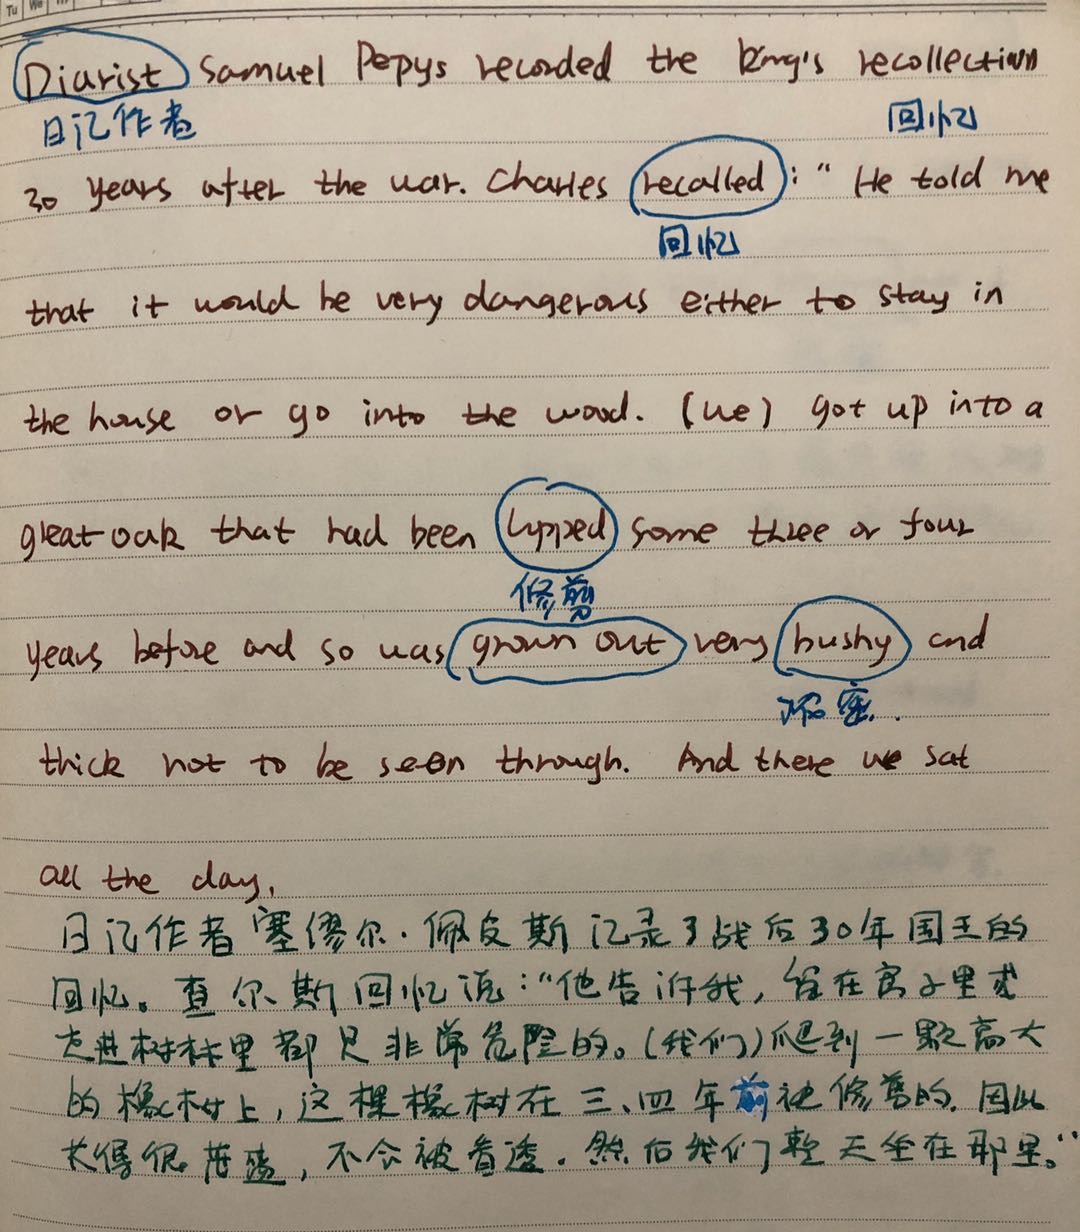 Tu We
Diarist Samuel Pepys recorded the King's recollection
日记作者 回忆
30 years after the war. Charles recalled: " He told me
回忆
that it would be very dangerous either to stay in
the house or go into the wood. (we) got up into a
great oak that had been lopped some three or four
修剪
years before and so was grown out very bushy and
茂密.
thick not to be seen through. And there we sat
all the day.
日记作者塞缪尔·佩皮斯记录了战后30年国王的
回忆。查尔斯回忆说:"他告诉我,留在房子里或
走进树林里都是非常危险的。(我们)爬到一颗高大
的橡树上,这棵橡树在三、四年前被修剪的.因此
长得很茂盛,不会被看透.然后我们整天坐在那里。"